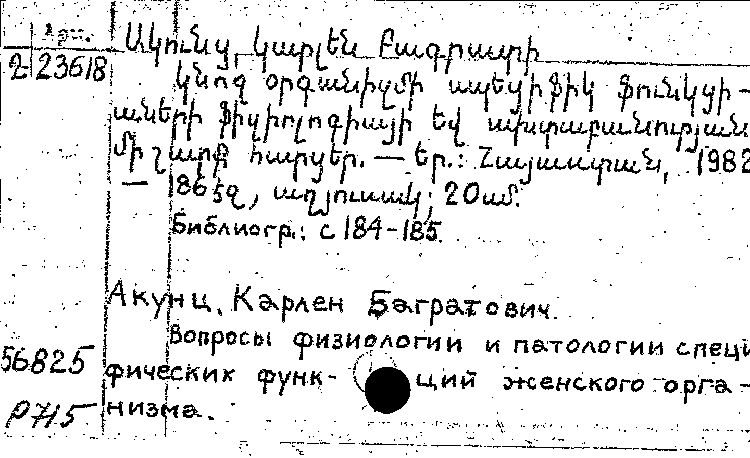 Արմ. Ակունց, Կարլեն Բագրատի
2 23618 Կնոջ օրգանիզմի սպեցիֆիկ ֆունկցի-
աների ֆիզիոլոգիայի եվ ախտաբանության
մի շարք հարցեր. — Եր.: Հայաստան, 1982
— 186 էջ, աղյուսակ; 20սմ.
Библиогр.: с 184-185.
Акунц, Карлен Багратович.
Вопросы физиологии и патологии специ
56825 фических функ- ций женского орга-
Р715 низма.